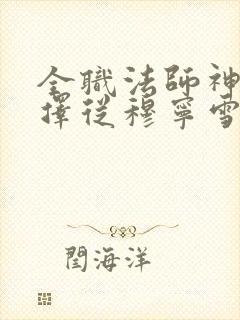 全職法師神
擇從穆寧雪
閆海洋